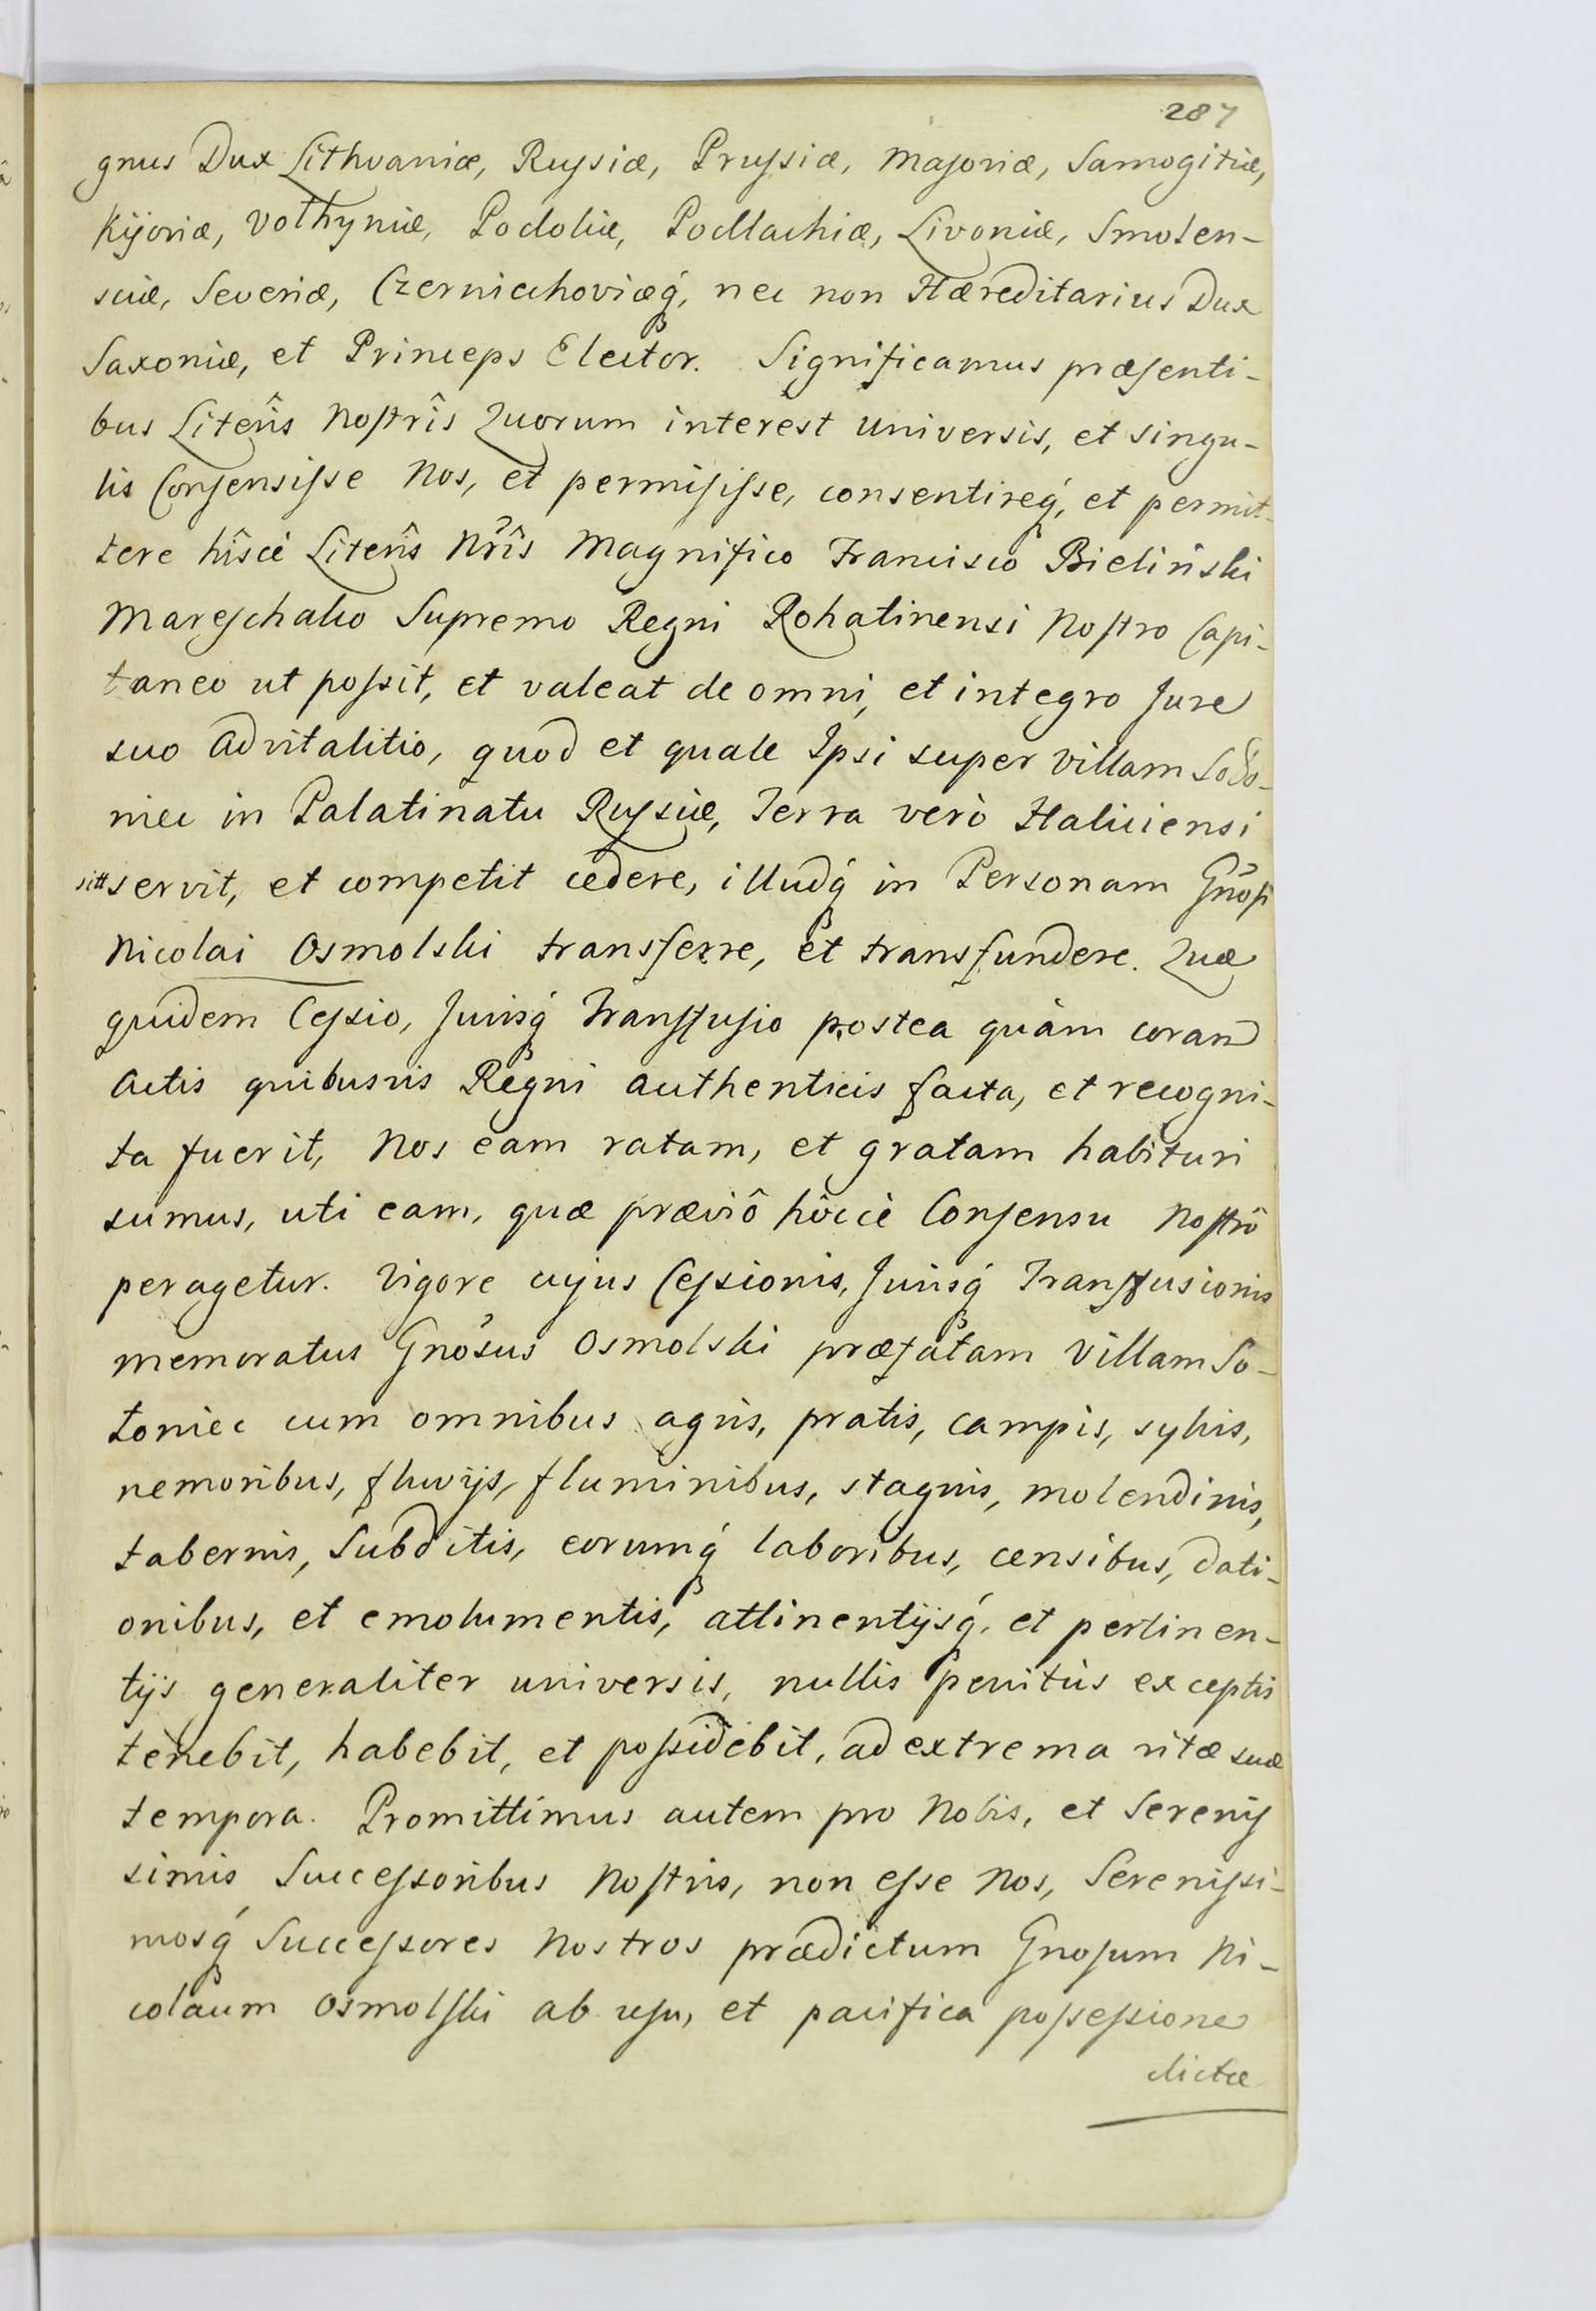 287
gnus Dux Lithvaniæ, Russiæ, Prussiæ, Masoviæ, Samogitiæ,
Kijoviæ, Volhyniæ, Podoliæ, Podlachiæ, Livoniæ, Smolen-
sciæ, Severiæ, Czerniechoviæq́, nec non Hæreditarius Dux
Saxoniæ, et Princeps Elector. Significamus præsenti-
bus Literîs Nostrîs Quorum interest universis, et singu-
lis Consensisse Nos, et permisisse, consentireq́, et permit-
tere hîsce Literîs Nr̃îs Magnifico Francisco Bieliński
Mareschalco Supremo Regni Rohatinensi Nostro Capi-
taneo ut possit, et valeat de omni, et integro Jure
suo advitalitio, quod et quale Ipsi super Villam Soło-
niec in Palatinatu Russiæ, Terra verò Haliciensi
sitt servit, et competit cedere, illudq́ in Personam Gnosi
Nicolai Osmolski transferre, et transfundere. Quæ
quidem Cessio, Jurisq́ Transfusio postea quàm coram
Actis quibusvis Regni authenticis facta, et recogni-
ta fuerit, Nos eam ratam, et gratam habituri
sumus, uti eam, quæ præviô hôcce Consensu Nostrô
peragetur. Vigore cujus Cessionis, Jurisq́ Transfusionis
memoratus Gnosus Osmolski præfatam Villam So-
łoniec cum omnibus agris, pratis, campis, sylvis,
nemoribus, fluvijs, fluminibus, stagnis, molendinis,
tabernis, Subditis, eorumq́ laboribus, censibus, dati-
onibus, et emolumentis, attinentijsq́, et pertinen-
tijs generaliter universis, nullis penitùs exceptis
tenebit, habebit, et possidebit, ad extrema vitæ suæ
tempora. Promittimus autem pro Nobis, et Serenis
simis Successoribus Nostris, non esse Nos, Serenissi-
mosq́ Successores Nostros prædictum Gnosum Ni-
colaum Osmolski ab usu, et pacifica possessione
dictæ